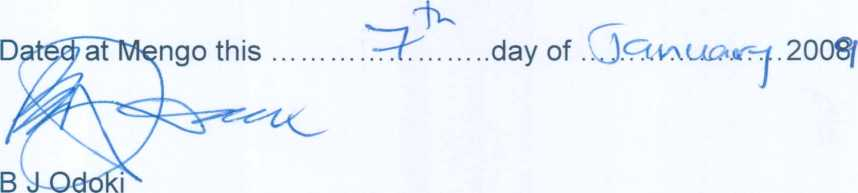 Dated at Mengo this ......7th......day of ...January...2009
B J Odoki